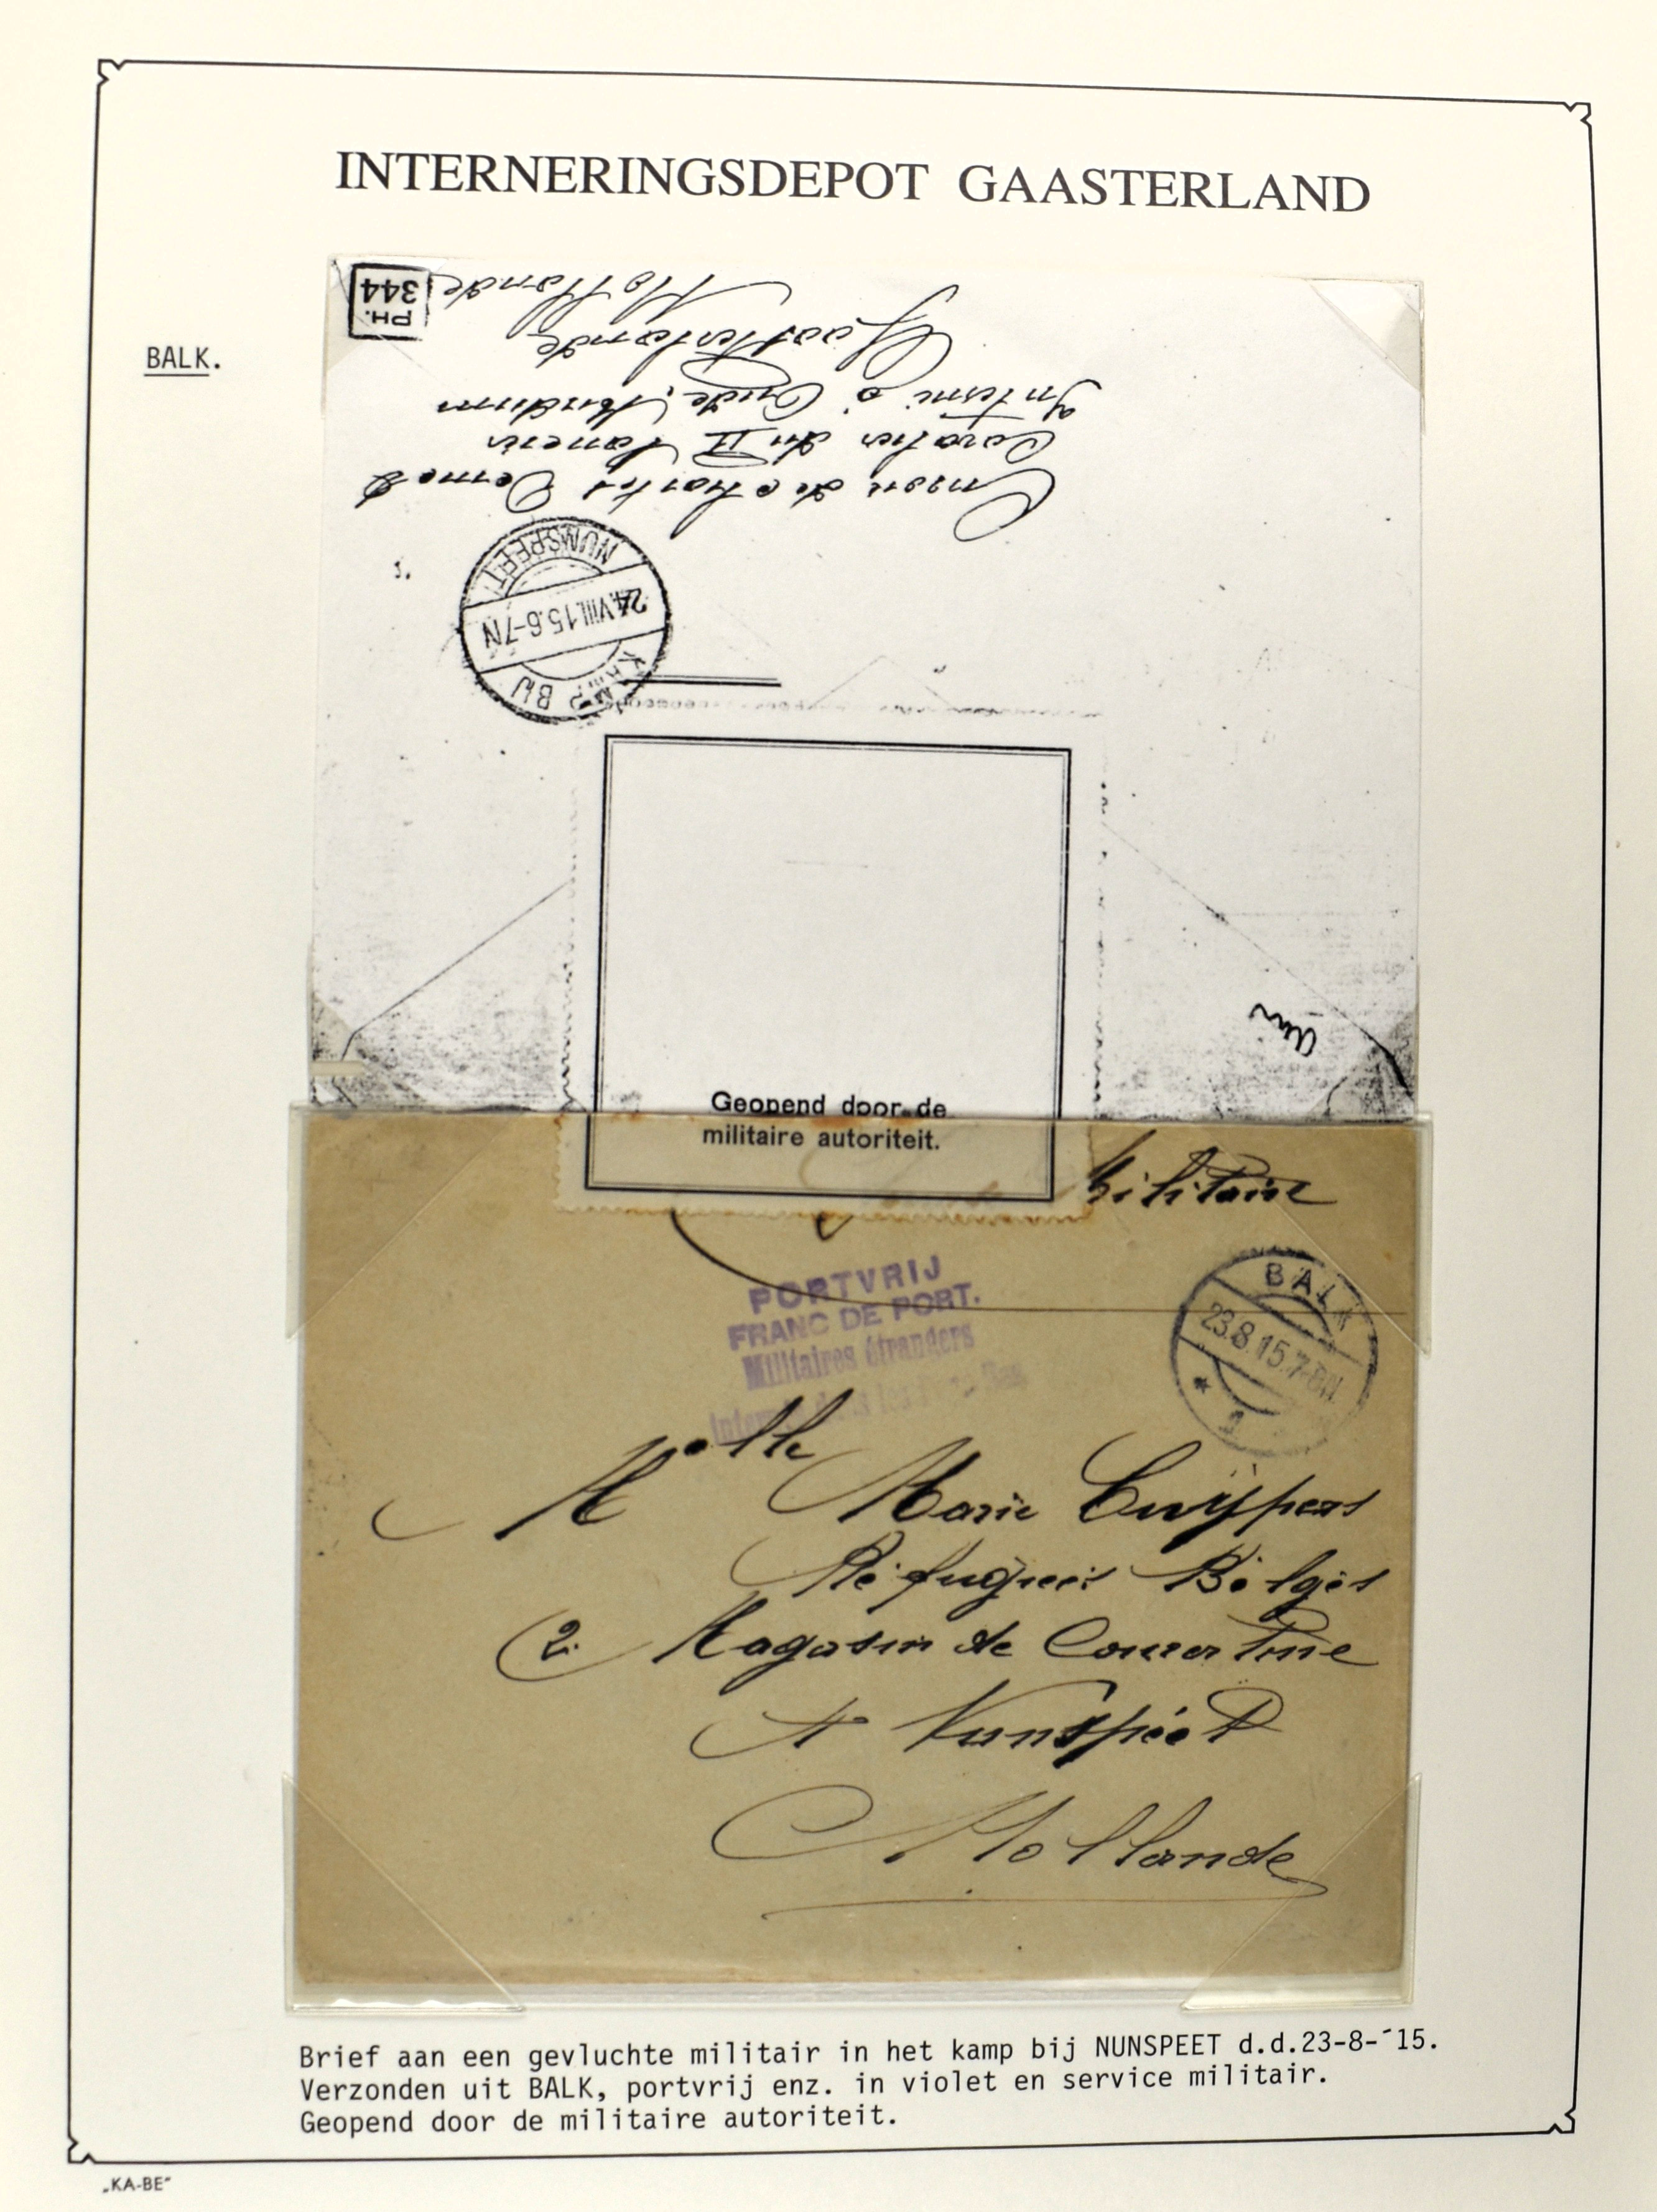 INTERNERINGSDEPOT GAASTERLAND
BALK.
PH.
344
Hollande
Gaasterlande
Interné à Oude Mirdum
du II Lanciers
Envoi de Charles
NUNSPEET
24.VIII.15.6-7N
KAMP BIJ
Geopend door de
militaire autoriteit.
Militaire
PORTVRIJ
FRANC DE PORT.
Militaires étrangers
BALK
23.8.15.7-8N
Melle Marie Cuÿpers
Réfugiées Belges
2. Magasin de
A Nunspéét
Hollande
Brief aan een gevluchte militair in het kamp bij NUNSPEET d.d.23-8-´15.
Verzonden uit BALK, portvrij enz. in violet en service militair.
Geopend door de militaire autoriteit.
„KA-BE"